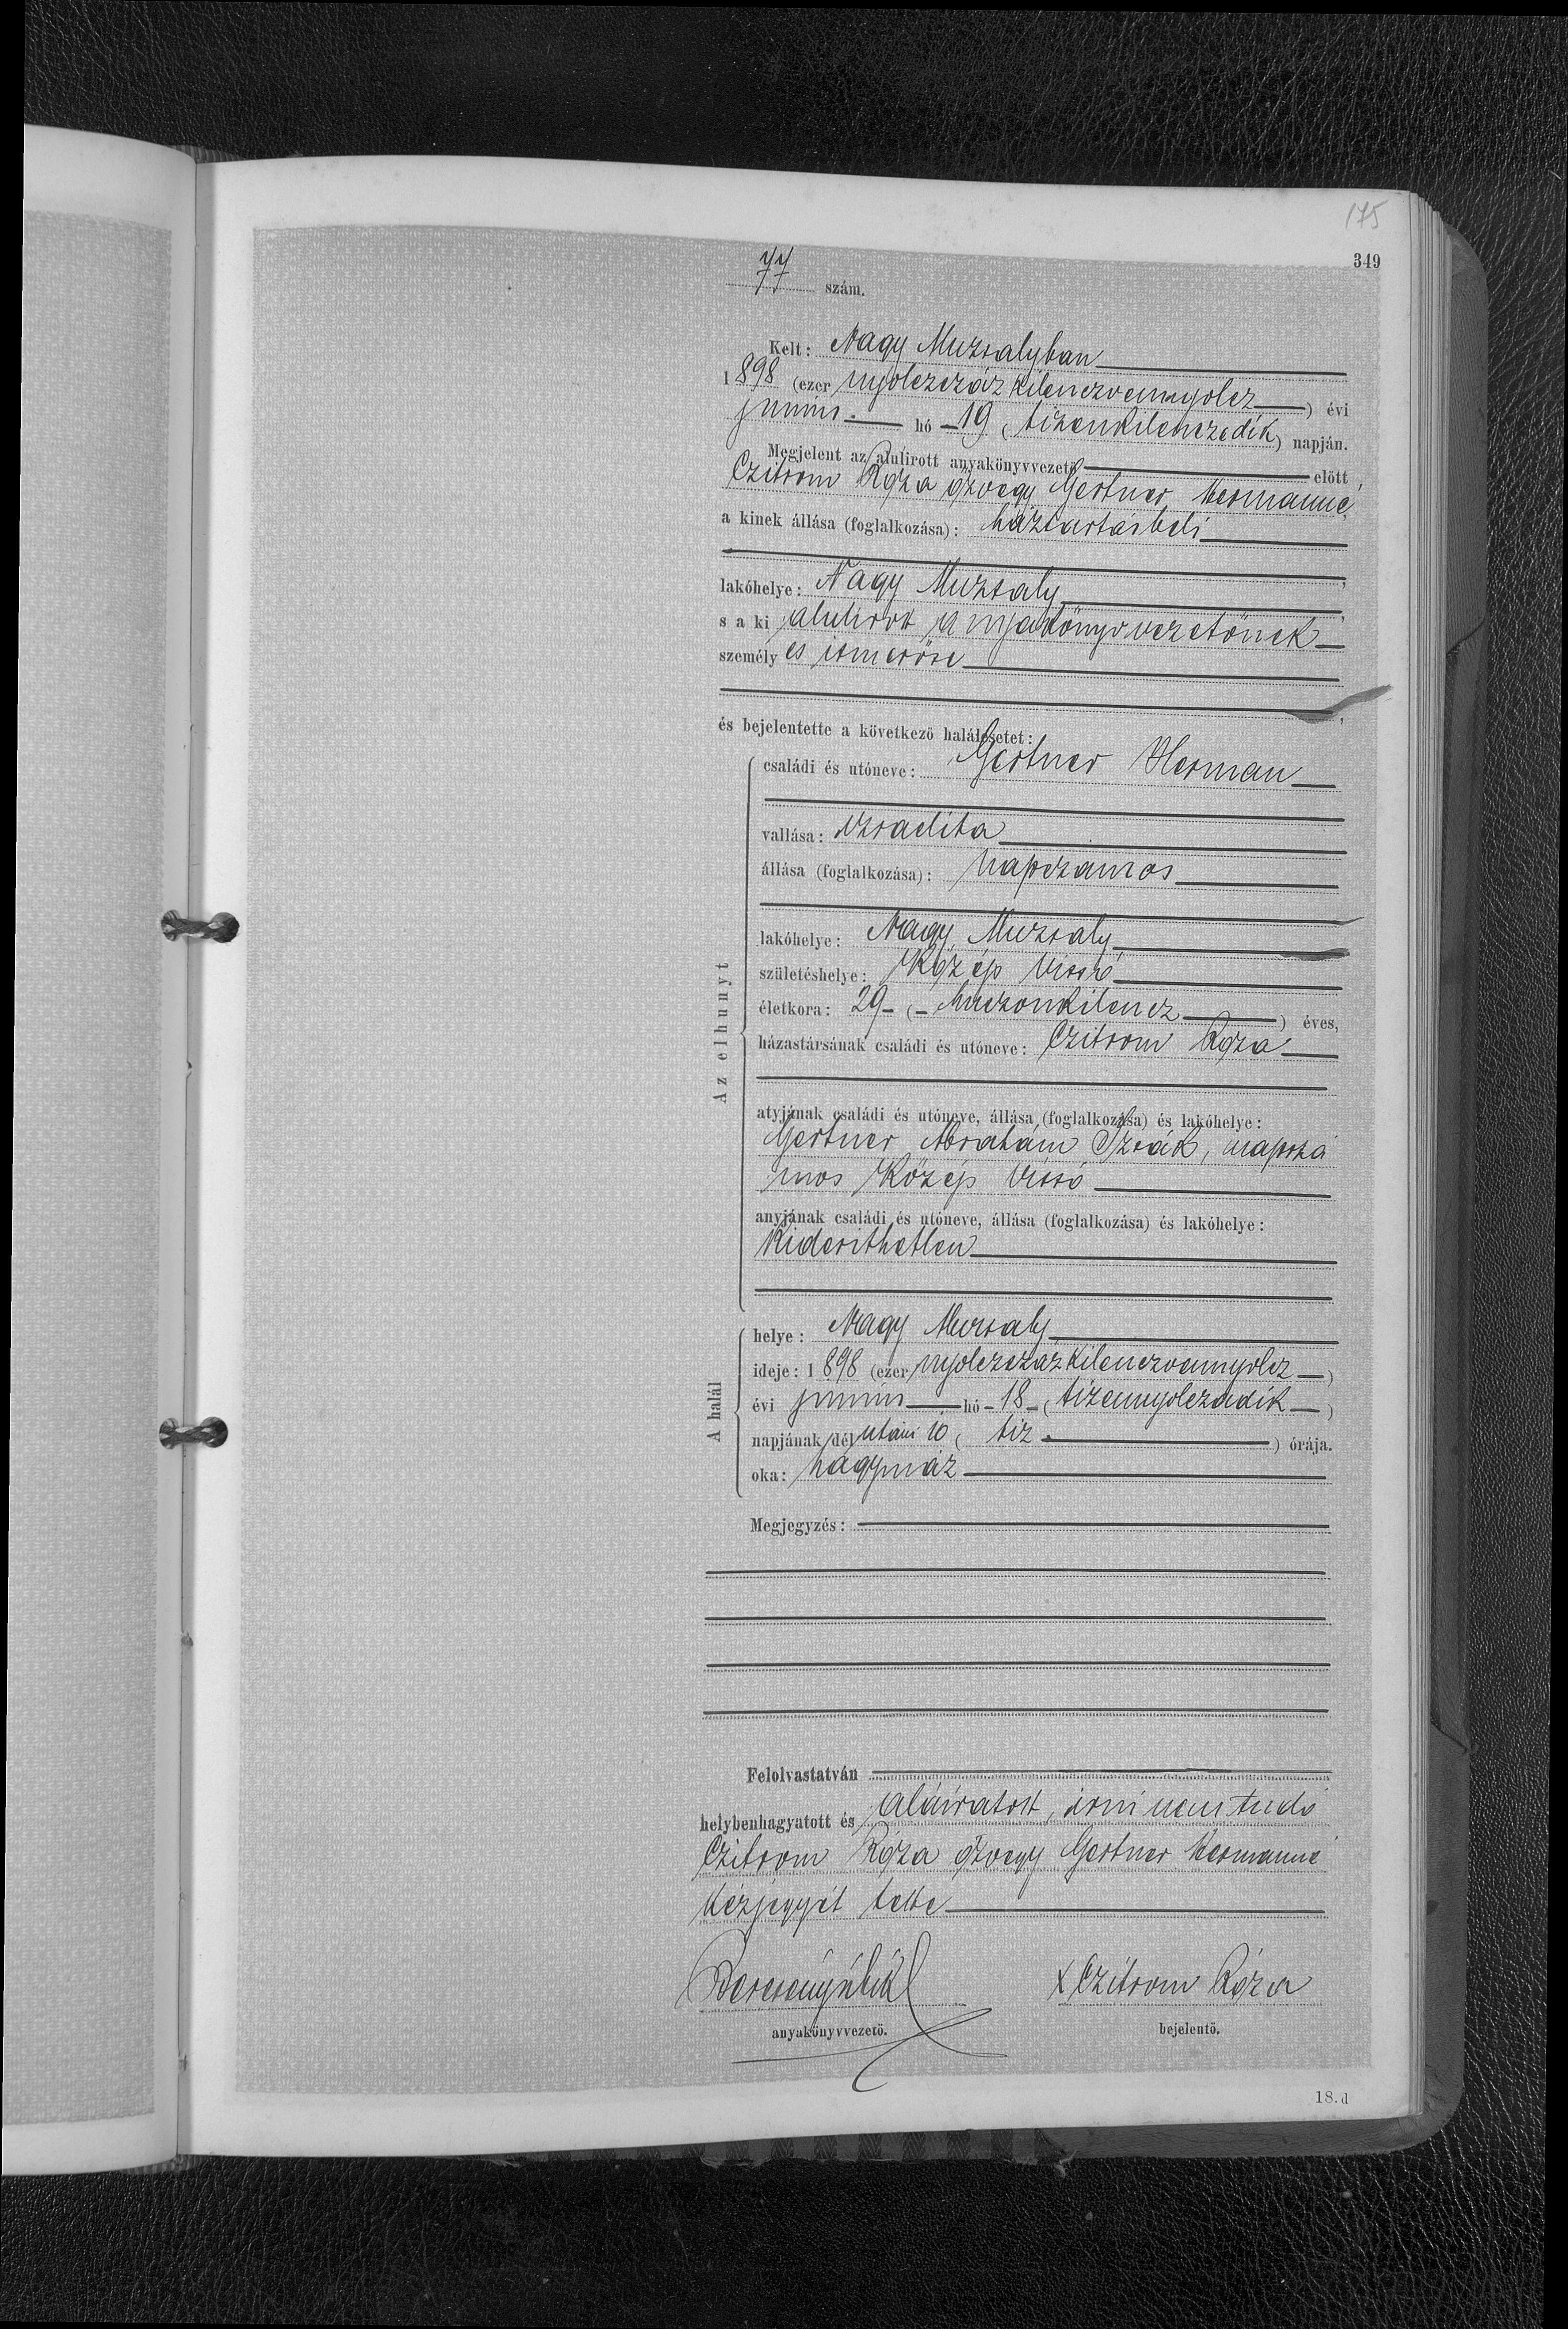 175
349
77 szám.
Kelt: Nagy Muzsalyban
1898 (ezer nyolczszázkilenczvennyolcz) évi
junius hó 19 (tizenkilenczedik) napján.
Megjelent az alulirott anyakönyvvezető előtt
Czitrom Róza özvegy Gertner Hermanné,
a kinek állása (foglalkozása): háztartásbeli
lakóhelye: Nagy Muzsaly
s a ki alulirott anyakönyvvezetőnek
személyes ismerőse
és bejelentette a következő halálesetet:
Az elhunyt
családi és utóneve: Gertner Herman
vallása: izraelita
állása (foglalkozása): napszámos
lakóhelye: Nagy Muzsaly
születéshelye: Közép Vissó
életkora: 29 – (– huszonkilencz) éves,
házastársának családi és utóneve: Czitrom Róza
atyjának családi és utóneve, állása (foglalkozása) és lakóhelye:
Gertner Abrahám Izsák, napszá
mos Közép Vissó
anyjának családi és utóneve, állása (foglalkozása) és lakóhelye:
Kiderithetlen
A halál
helye: Nagy Muzsaly
ideje: 1898 (ezer nyolczszázkilenczvennyolcz)
évi junius hó – 18 – (tizennyolczadik)
napjának délutáni 10 (tiz) órája.
oka: hagymáz
Megjegyzés:
Felolvastatván
helybenhagyatott és aláiratott, irni nem tudó
Czitrom Róza özvegy Gertner Hermanné
kézjegyét tette
x Czitrom Róza
anyakönyvvezető. bejelentő.
18. d